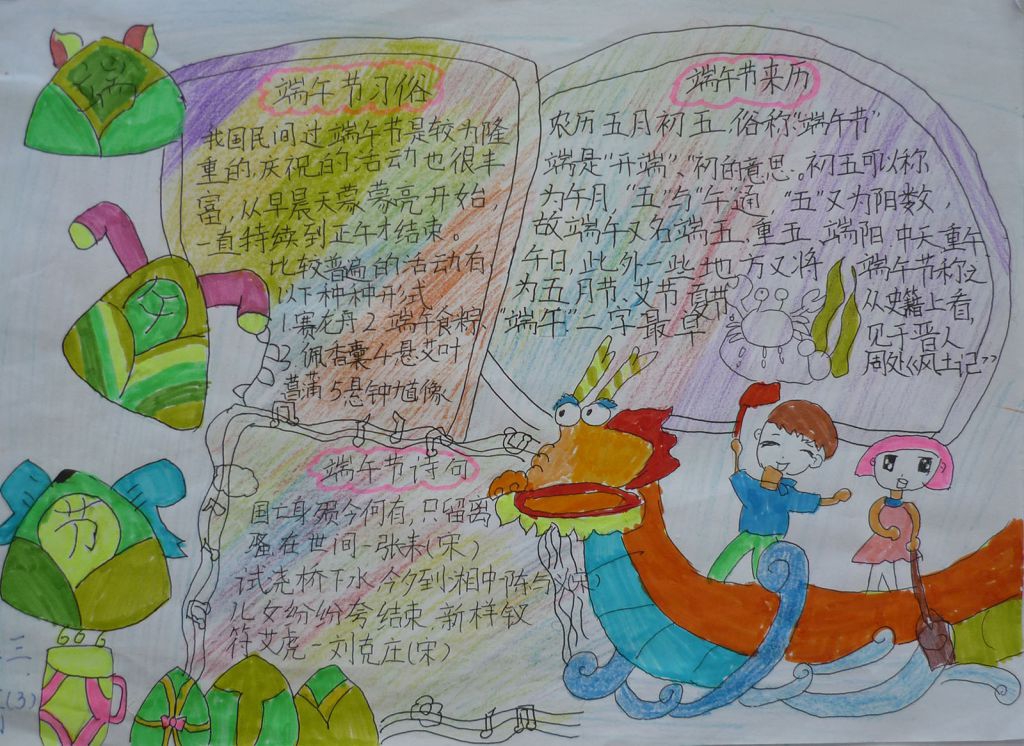 端
午
节
端午节习俗
我国民间过端午节是较为隆
重的,庆祝的活动也很丰
富,从早晨天蒙蒙亮开始,
一直持续到正午才结束。
比较普遍的活动有
以下种种形式
1.赛龙舟2.端午食粽、
3.佩香囊4.悬艾叶
菖蒲5.悬钟馗像
端午节来历
农历五月初五,俗称"端午节"
端是"开端"、"初的意思。初五可以称
为午月,"五"与"午"通 "五"又为阳数,
故端午又名端五、重五、端阳 中天重午
午日,此外一些地方又将 端午节称之
为五月节、艾节 夏节 从史籍上看,
"端午"二字最早 见于晋人
周处《风土记》
端午节诗句
国亡身殒今何有,只留离
骚在世间-张耒(宋)
试浇桥下水,今夕到湘中-陈与义(宋)
儿女纷纷夸结束,新样钗
符艾虎-刘克庄(宋)
三
(3)